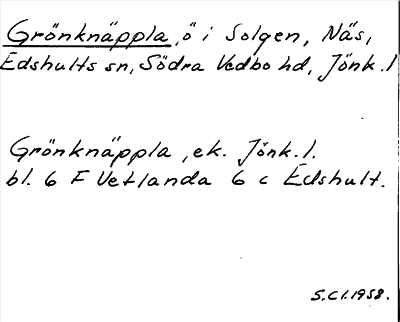 Grönknäppla, ö i Solgen, Näs,
Edshults sn, Södra Vedbo hd, Jönk. l
Grönknäppla, ek. Jönk. l.
bl. 6 F Vetlanda 6 c Edshult.
S.Cl. 1958.